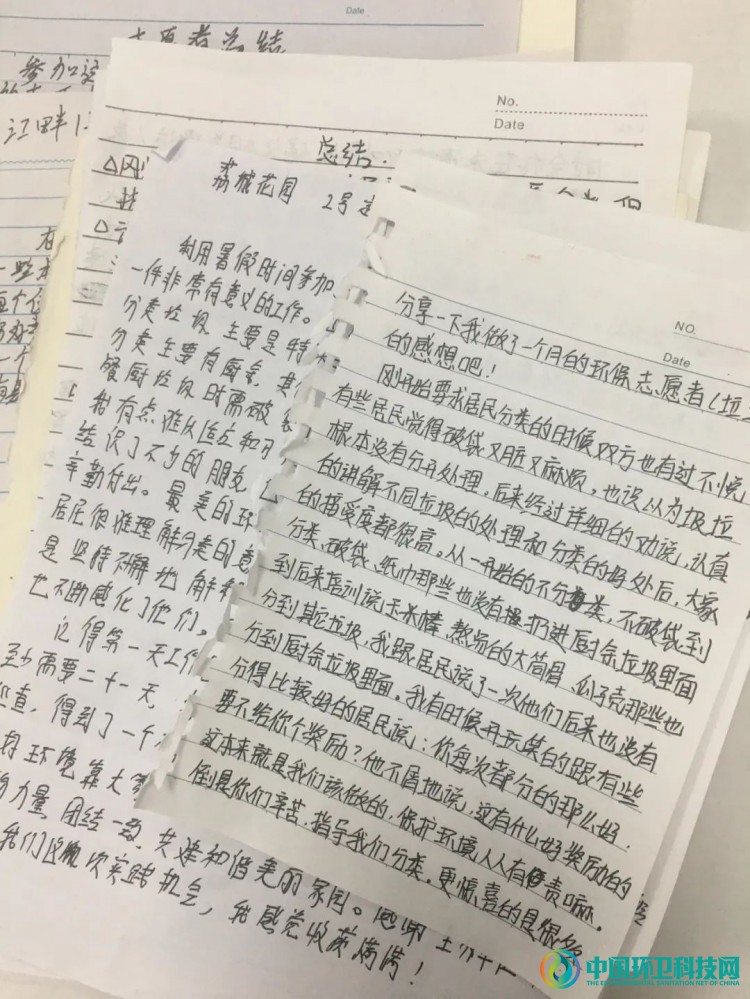 Date
志愿者总结
参加这
江畔1
No.
Date
总结:
荔城花园 2号
利用暑假时间参加
一件非常有意义的工作。
分类垃圾 主要是特
分类主要有厨余,其
餐厨垃圾时需破袋
我有点难以适应和
结识了不少的朋友
辛勤付出。最美的环
居民很难理解分类的意
是坚持不懈地 解释
也不断感化了他们。
记得第一天工作
至少需要二十一天
巡查,得到了一个
环境靠大家
力量 团结一致,共建和谐美丽家园。感谢
我们这次实践机会,我感觉收获满满!
NO.
Date
分享一下我做了一个月的环保志愿者(垃
的感想吧!
刚开始要求居民分类的时候双方也有过不悦
有些居民觉得破袋又脏又麻烦,也误以为垃圾
根本没有分开处理,后来经过详细的劝说,认真
的讲解不同垃圾的处理和分类的好处后,大家
的接受度都很高。从一开始的不分类,不破袋到
分类、破袋、纸巾那些也没有扔进厨余垃圾里面
到后来培训说玉米棒、熬汤的大筒骨、瓜子壳那些也
分到其它垃圾,我跟居民说了一次他们后来也没有
分到厨余垃圾里面。我有时候开玩笑的跟有些
分得比较好的居民说:你每次都分的那么好,
要不给你个奖励?他不屑地说,这有什么好奖励的,
这本来就是我们该做的,保护环境人人有责嘛。
倒是你们辛苦,指导我们分类。更惊喜的是很多
中国环卫科技网
THE ENVIRONMENTAL SANITATION NET OF CHINA